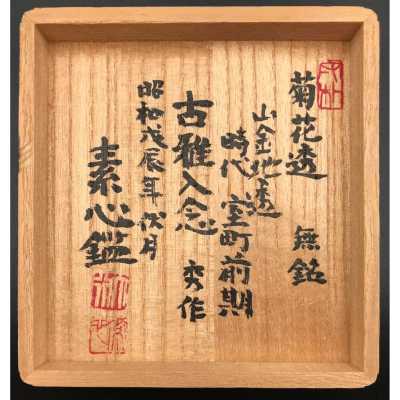 菊花透 無銘
山金地透
時代 室町前期
古雅入念 秀作
昭和戊辰年 月
素心鑑